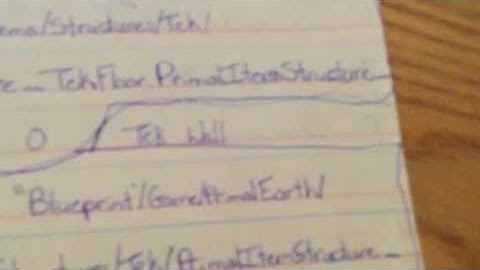 /Structures/Tek/
TekFloor.PrimalItemStructure_
0 Tek Wall
"Blueprint'/Game/PrimalEarth/
/Tek/PrimalItemStructure_